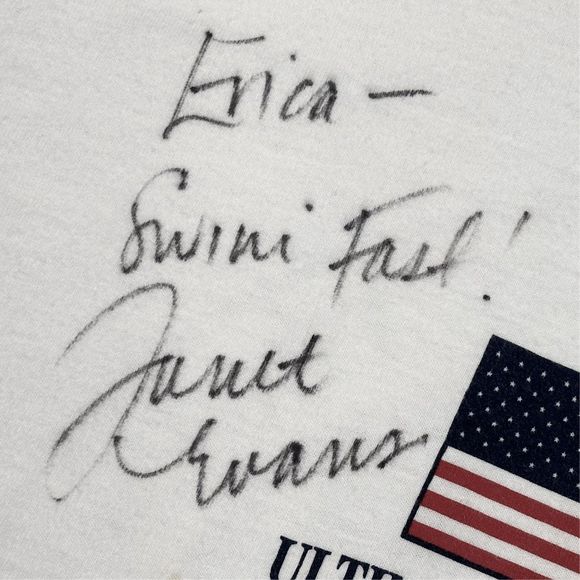 Erica —
Swim Fast!
Janet
Evans
ULTI